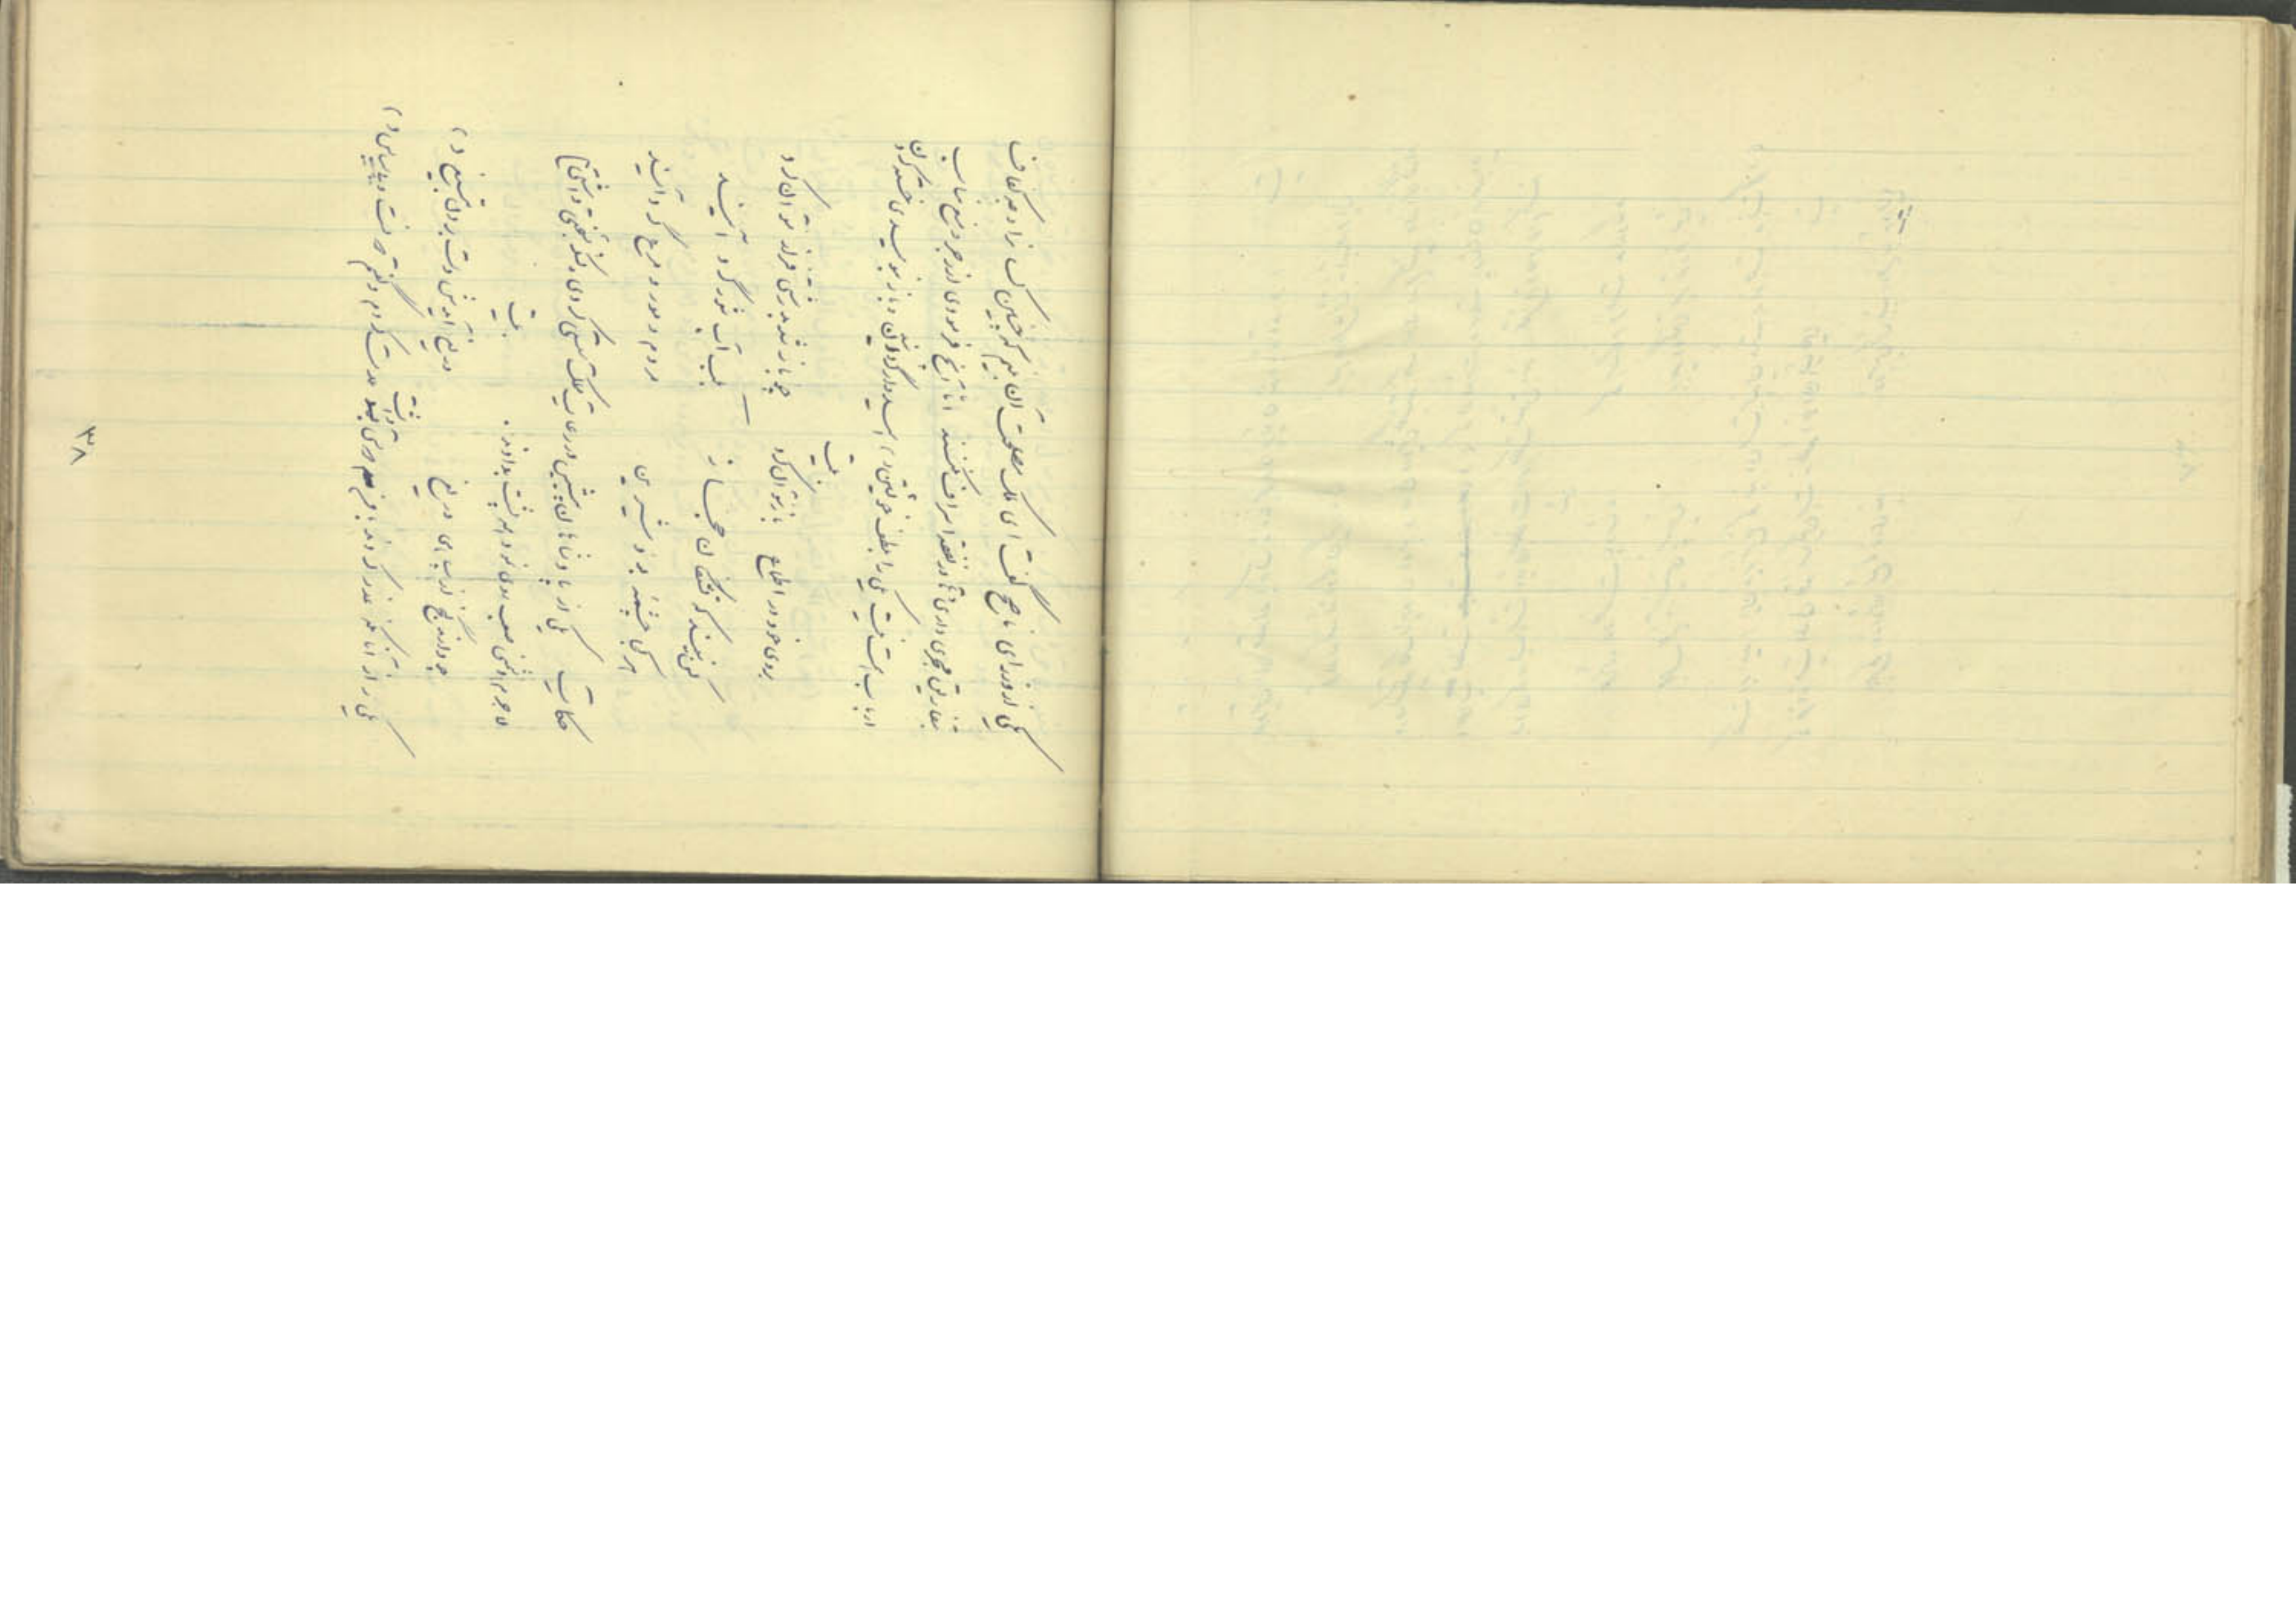 یکی از وزرای ناصح گفت ای ملک مصلحت آن بینم که چنین کسان را وجه کفاف
بتفاریق مجری داری تا در نفقه اسراف نکنند اما آنچه فرمودی از زجر و منع مناسب
ارباب همت نیست یکی را بلطف خویش امیدوار گردانیدن و باز بنومیدی خسته کردن
بیت
بروی خود در اطماع باز نتوان کرد چو باز شد بدرشتی فراز نتوان کرد
کس نبیند که تشنگان حجاز بلب آب شور گرد آیند
هر کجا چشمه بود شیرین مردم و مور و مرغ گرد آیند
حکایت یکی از پادشاهان پیشین در رعایت مملکت سستی کردی و لشکر بسختی داشتی
لاجرم دشمنی صعب روی نمود همه پشت بدادند.
بیت
چو دارند گنج از سپاهی دریغ دریغ آیدش دست بردن بتیغ
یکی را از آنانکه غدر کردند با منش دوستی بود ملامت کردم و گفتم دونست و ناسپاس و
۳۸